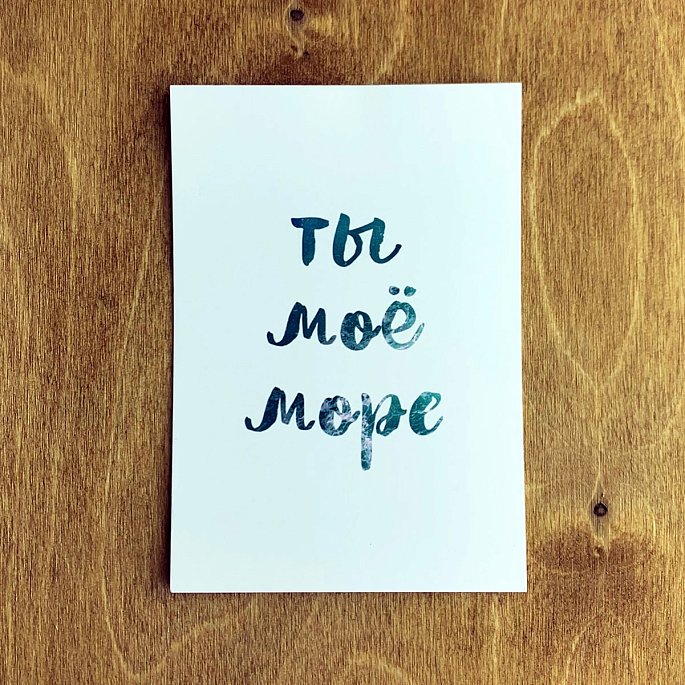 ты
моё
море